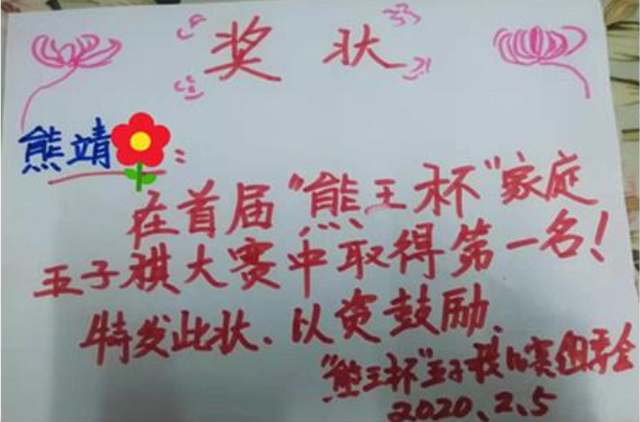 奖状
熊靖:
在首届“熊王杯”家庭
五子棋大赛中取得第一名!
特发此状、以资鼓励、
“熊王杯”五子棋比赛组委会
2020、2、5